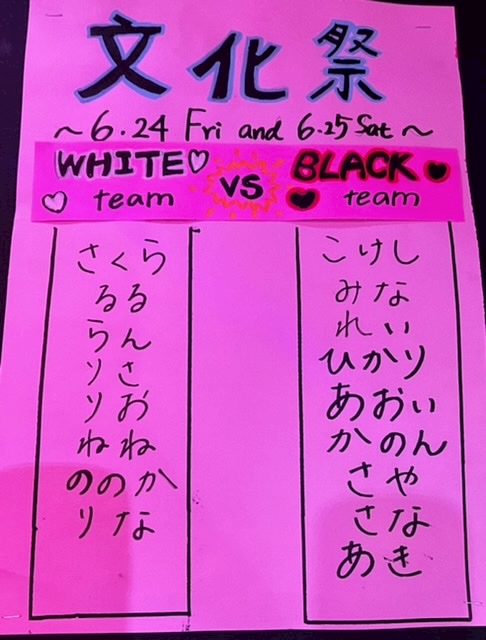 文化祭
~6.24 Fri and 6.25 Sat~
WHITE♡ VS BLACK♥
♡ team ♥ team
さくら
るる
らん
りさ
りお
ねね
ののか
りな
こけし
みな
れい
ひかり
あおい
かのん
さや
さな
あき